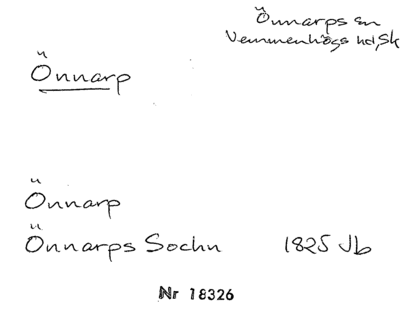 Önnarps sn
Vemmenhögs hd, Sk
Önnarp
Önnarp
Önnarps Sochn 1825 Jb
Nr 18326